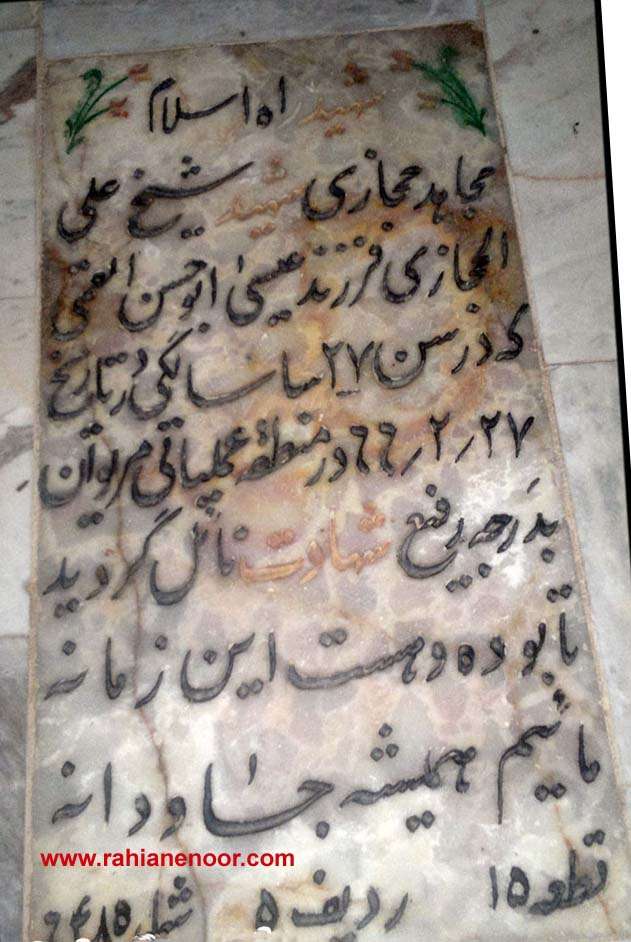 شهید راه اسلام
مجاهد حجازی شهید شیخ علی
الحجازی فرزند عیسی ابوحسن القمی
که در سن ۲۷ ساسالگی در تاریخ
۲۷/۲/۶۶ در منطقه عملیاتی مریوان
بدرجه رفیع شهادت نائل گردید
تا بوده و هست این زمانه
مائیم همیشه جاودانه
www.rahianenoor.com
قطعه ۱۵ ردیف ۵ شماره